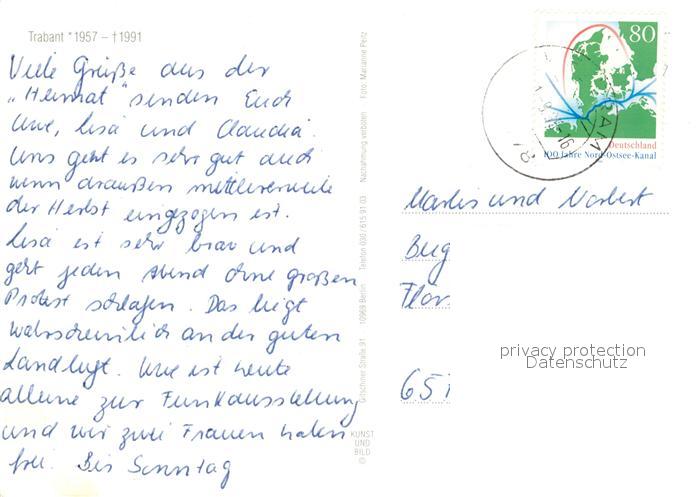 Trabant *1957 – †1991
Viele Grüße aus der
„Heimat" senden Euch
Uwe, Lisa und Claudia.
Uns geht es sehr gut auch
wenn draußen mittlerweile
der Herbst eingezogen ist.
Lisa ist sehr brav und
geht jeden Abend ohne großen
Protest schlafen. Das liegt
wahrscheinlich an der guten
Landluft. Uwe ist heute
alleine zur Funkausstellung
und wir zwei Frauen haben
frei. Bis Sonntag
KUNST
UND
BILD
©
Gitschiner Straße 91 10969 Berlin Telefon 030/ 615 91 03 Nachahmung verboten Foto: Marianne Petz
80
Deutschland
100 Jahre Nord-Ostsee-Kanal
Marlis und Norbert
privacy protection
Datenschutz